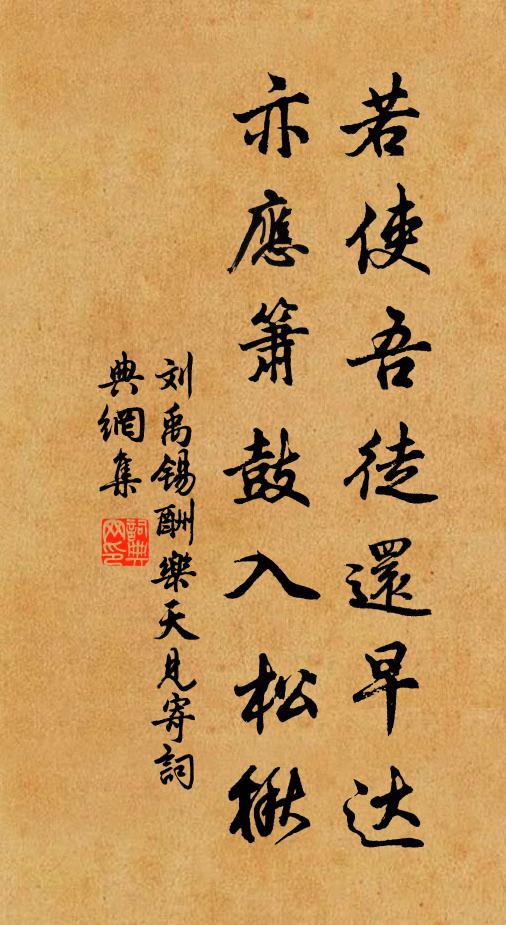 若使吾徒還早达
亦應箫鼓入松楸
刘禹锡酬樂天見寄詞
典網集
詞典网印